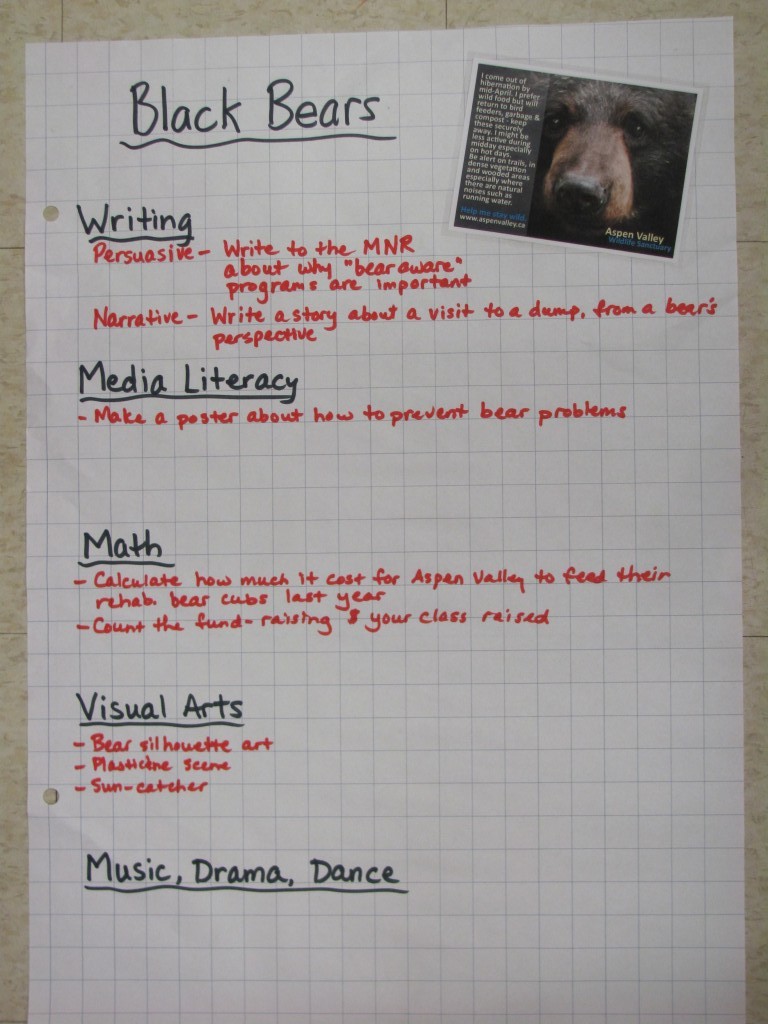 Black Bears
I come out of
hibernation by
mid-April. I prefer
wild food but will
return to bird
feeders, garbage &
compost - keep
these securely
away. I might be
less active during
midday especially
on hot days.
Be alert on trails, in
dense vegetation
and wooded areas
especially where
there are natural
noises such as
running water.
Help me stay wild.
www.aspenvalley.ca
Aspen Valley
Wildlife Sanctuary
Writing
Persuasive - Write to the MNR
about why "bear aware"
programs are important
Narrative - Write a story about a visit to a dump, from a bear's
perspective
Media Literacy
- Make a poster about how to prevent bear problems
Math
- Calculate how much it cost for Aspen Valley to feed their
rehab. bear cubs last year
- Count the fund-raising $ your class raised
Visual Arts
- Bear silhouette art
- Plasticine scene
- Sun-catcher
Music, Drama, Dance